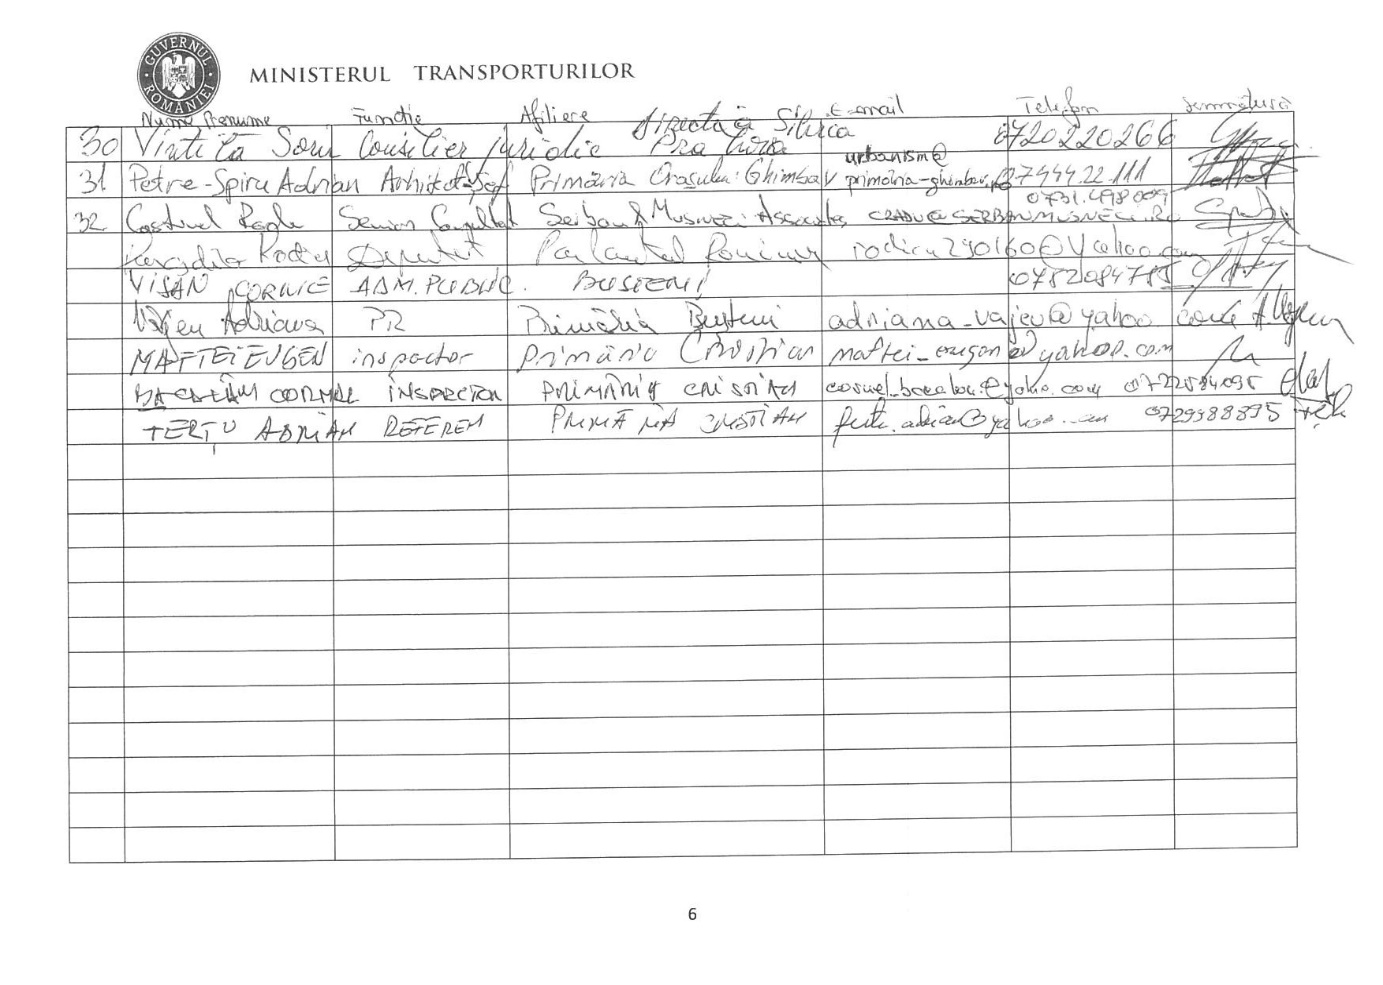 GUVERNUL ROMÂNIEI
MINISTERUL TRANSPORTURILOR
Nume Prenume Funcție Afiliere E-mail Telefon Semnătură
30 Vintilă Sorin Consilier juridic Direcția Silvica Prahova 0720220266
31 Petre-Spiru Adrian Arhitect Șef Primăria Orașului Ghimbav urbanism@ primaria-ghimbav.ro 0744422111
32 Senior Consultant Serban & Musneci Asociatii CRADU@SERBANMUSNECI.RO 0731.498009
Deputat Parlamentul României rodicu230160@yahoo.com
VISAN CORNEL ADM. PUBLIC. BUSTENI 0782084785
Vajeu Adriana PR Primăria Bușteni adriana_vajeu@yahoo.com
MAFTEI EUGEN inspector Primăria Cristian maftei_eugen@yahoo.com
CORNEL INSPECTOR PRIMĂRIA CRISTIAN
TERȚU ADRIAN REFEREN PRIMĂRIA CRISTIAN 0729988895
6